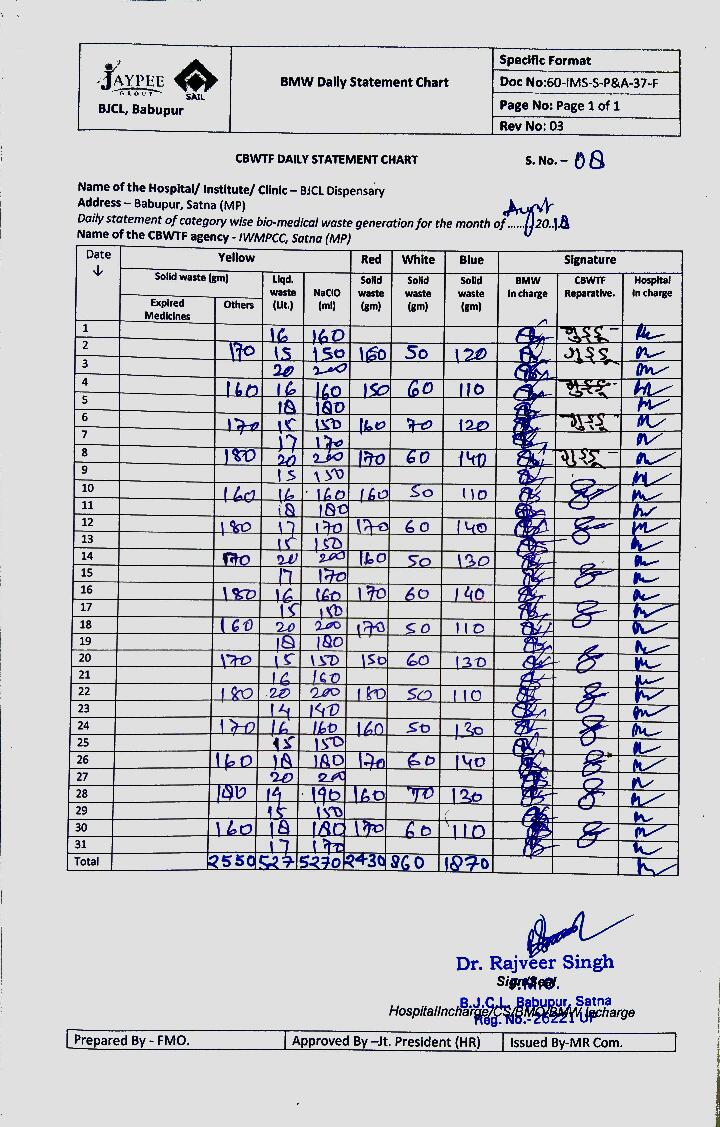 JAYPEE
GROUP
SAIL
BJCL, Babupur
BMW Daily Statement Chart
Specific Format
Doc No:60-IMS-S-P&A-37-F
Page No: Page 1 of 1
Rev No: 03
CBWTF DAILY STATEMENT CHART S. No. – 08
Name of the Hospital/ Institute/ Clinic – BJCL Dispensary
Address – Babupur, Satna (MP)
Daily statement of category wise bio-medical waste generation for the month of August 2018
Name of the CBWTF agency - IWMPCC, Satna (MP)
Date Yellow Red White Blue Signature
Solid waste (gm) Liqd. waste (Lt.) NaClO (ml) Solid waste (gm) Solid waste (gm) Solid waste (gm) BMW In charge CBWTF Reparative. Hospital In charge
Expired Medicines Others
1 16 160 गुड्डू
2 170 15 150 160 50 120 गुड्डू
3 20 200
4 160 16 160 150 60 110 गुड्डू
5 18 180
6 170 15 150 160 70 120 गुड्डू
7 17 170
8 180 20 200 170 60 140 गुड्डू
9 15 150
10 160 16 160 160 50 110
11 18 180
12 180 17 170 170 60 140
13 15 150
14 170 20 200 160 50 130
15 17 170
16 180 16 160 170 60 140
17 15 150
18 160 20 200 170 50 110
19 18 180
20 170 15 150 150 60 130
21 16 160
22 180 20 200 180 50 110
23 14 140
24 170 16 160 160 50 130
25 15 150
26 160 18 180 170 60 140
27 20 200
28 180 19 190 160 70 130
29 15 150
30 160 18 180 170 60 110
31 17 170
Total 2550 527 5270 2430 860 1870
Dr. Rajveer Singh
Sign/Seal
B.J.C.L. Babupur, Satna
HospitalIncharge/CS/BMO/BMW Incharge
Reg. No.-26221 UP
Prepared By - FMO. Approved By –Jt. President (HR) Issued By-MR Com.